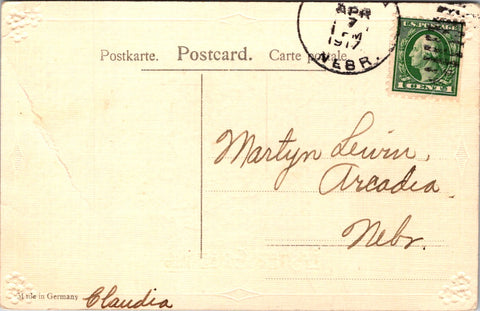 APR
7
1 PM
1917
NEBR.
U.S. POSTAGE
1 CENT 1
Postkarte. Postcard. Carte postale.
Martyn Lewin,
Arcadia
Nebr.
Made in Germany
Claudia